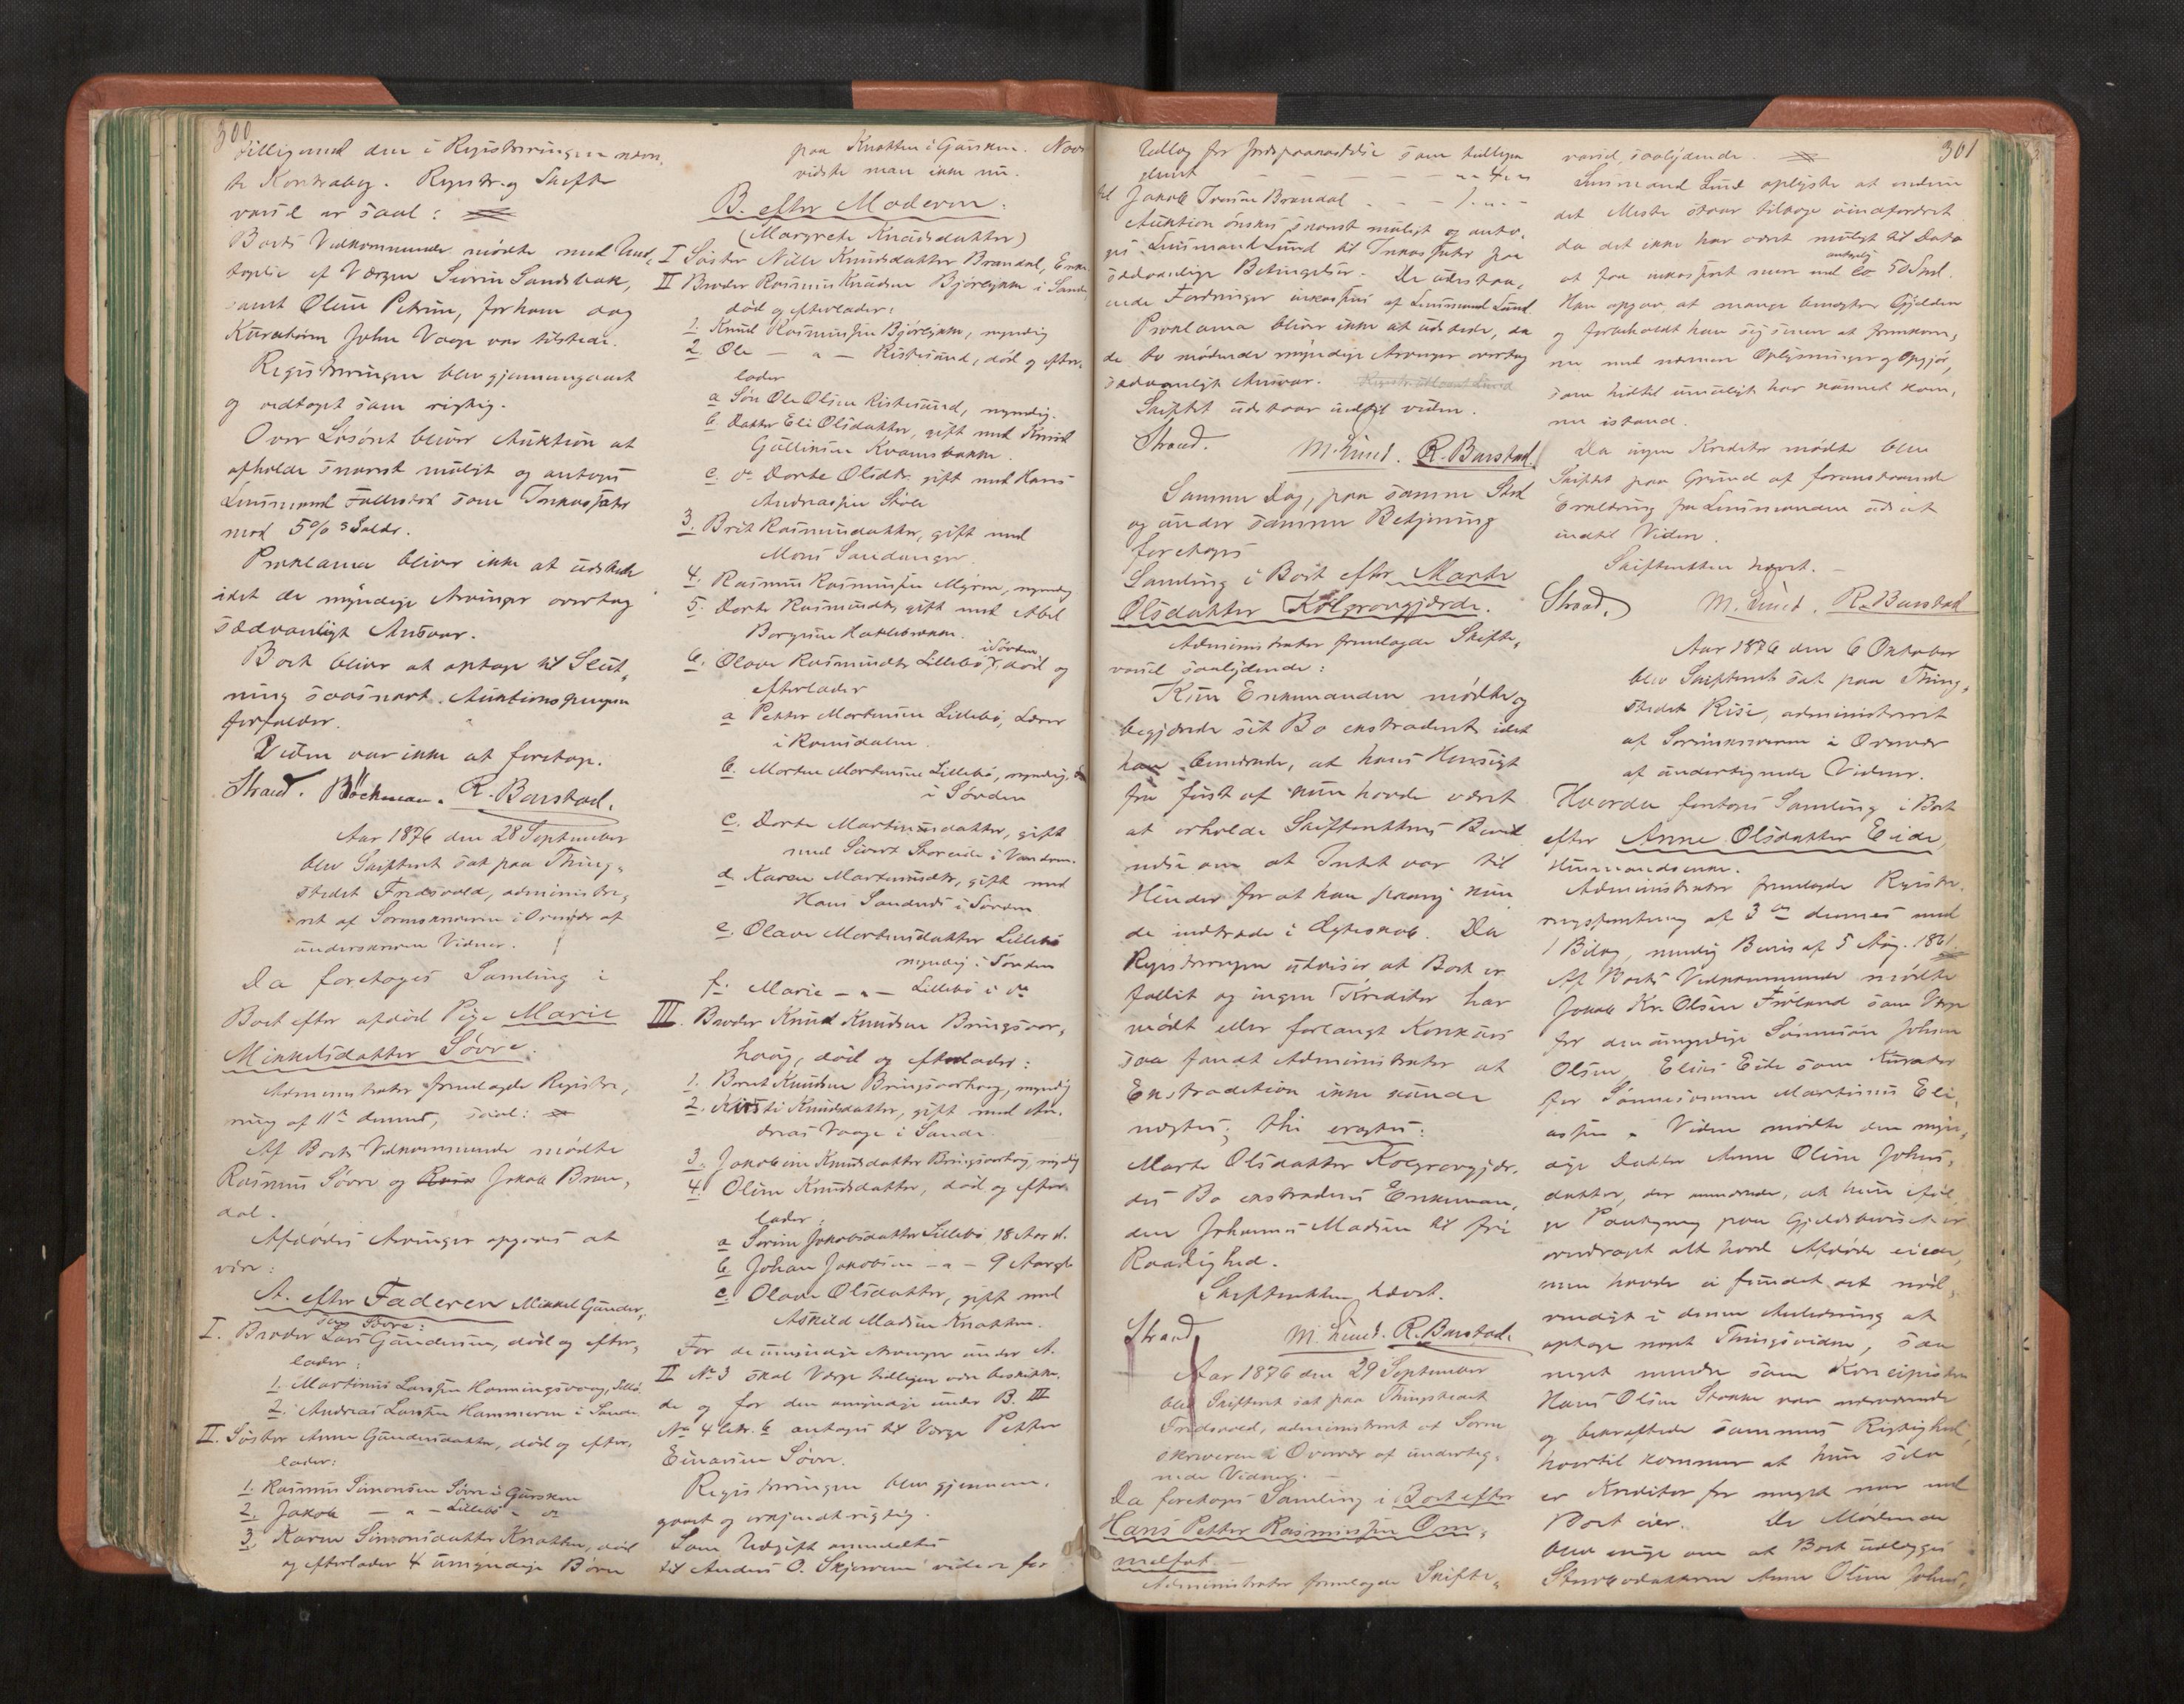 300
tilligemed den i Registreringen nævn,
te Kontrabog. Registr. og Skifte
varsel er saal:
Boets Vedkommende mødte med Und,
tagelse af Værgen Sivrin Sandsbak,
samt Oline Petrine, for hvem dog
Kuratoren John Vaage var tilstede.
Registreringen blev gjennemgaaet
og vedtaget som rigtig.
Over Løsøret bliver Auktion at
afholde snarest muligt og antages
Lensmand som Inkassator
mod 5% Salær.
Proklama bliver ikke at udstede
idet de myndige Arvinger overtog
sædvanligt Ansvar.
Boet bliver at optage til Slut,
ning saasnart Auktionspengene
forfalder.
Videre var ikke at foretage.
Strand. Böckman. R. Barstad.
Aar 1876 den 28 September
blev Skifteret sat paa Thing,
stedet Fredsvold, administre,
ret af Sorenskriveren i Overvær af
underskrevne Vidner.
Da foretages Samling i
Boet efter afdød Pige Marie
Mikkelsdatter Søvre.
Administrator fremlagde Registre,
ring af 11te dennes, saal:
Af Boets Vedkommende mødte
Rasmus Søvre og Jakob Bran,
dal.
Afdødes Arvinger opgives at
være:
A. efter Faderen Mikkel Gunder,
sen Søvre:
I. Broder Lars Gundersen, død og efter,
lader:
1. Martinus Larssen Honningsvaag,
2. Andreas Larssen Hammeren i Sande
II. Søster Anne Gundersdatter, død og efter,
lader:
1. Rasmus Simonsen Søvre i Gursken
2. Jakob — " — Lillebø " do
3. Karen Simonsdatter Knotten, død
og efterlader 4 umyndige Børn
paa Knotten i Gursken. Navne
vidste man ikke nu.
B. efter Moderen:
(Margrete Knudsdatter)
I Søster Nille Knudsdatter Brandal, Enke
II Broder Rasmus Knudsen Bjørlykke i Sande,
død og efterlader:
1. Knud Rasmussen Bjørlykke, myndig
2. Ole — " — Ristesund, død og efter,
lader
a Søn Ole Olsen Ristesund, myndig.
b. Datter Eli Olsdatter, gift med Knud
Gulliksen Kvamsbakke.
c. do Dorte Olsdtr. gift med Hans
Andreassen Skole
3. Brit Rasmusdatter, gift med
Mons Saudanger.
4. Rasmus Rasmussen Myren, myndig
5. Dorte Rasmusdtr, gift med Abel
Borgesen Hatlebrække.
6. Olave Rasmusdtr Lillebø i Sørden, død og
efterlader
a Petter Mortensen Lillebø, Lærer
i Romsdalen.
b. Morten Mortensen Lillebø, myndig,
i Sørden
c. Dorte Martinusdatter, gift
med Sivert Storeide i Vanelven.
d. Karen Martinusdtr, gift med
Hans Sandnes i Sørden
e. Olave Mortensdatter Lillebø
myndig i Sørden
f. Marie — " — Lillebø i do
III. Broder Knud Knudsen Bringsvor,
houg, død og efterlader:
1. Bernt Knudsen Bringsvorhoug, myndig
2. Kirsti Knudsdatter, gift med An,
dreas Vaage i Sande.
3. Jakobine Knudsdatter Bringsvorhoug, myndig
4. Oline Knudsdatter, død og efter,
lader:
a Serine Jakobsdatter Lillebø 18 Aar gl.
b. Johan Jakobsen — " — 9 Aar gl.
c. Olave Olsdatter, gift med
Askild Madsen Knotten.
For de umyndige Arvinger under A.
II No 3 skal Værge tidligere være beskikke,
de og for den umyndige under B. III
No 4 litr. b antages til Værge Petter
Einarsen Søvre.
Registreringen blev gjennem,
gaaet og erkjendt rigtig.
Som Udgift anmeldtes
til Anders O. Skjervene videre for
301
Udlæg for Jordpaakastelse som tidligere
glemt — — — — " 4 "
til Jakob Iversen Brandal - - - 1. " . -
Auktion ønskes snarest muligt og anta,
ges Lensmand Lund til Inkassator paa
sædvanlige Betingelser. De udestaa,
ende Fordringer inkasseres af Lensmand Lund.
Proklama bliver ikke at udstede, da
de to mødende myndige Arvinger overtog
sædvanligt Ansvar.
Skiftet udstaar indtil videre.
Strand. M. Lund. R. Barstad.
Samme Dag, paa samme Sted
og under samme Betjening
foretages
Samling i Boet efter Marte
Olsdatter Kolgrovgjærde.
Administrator fremlagde Skifte,
varsel saalydende:
Kun Enkemanden mødte og
begjærede sit Bo extraderet idet
han bemærkede, at hans Hensigt
fra først af kun havde været
at erholde Skifterettens Bevid
nelse om at Intet var til
Hinder for at han paany kun
de indtræde i Ægteskab. Da
Registreringen udviser at Boet er
fallit og ingen Kreditor har
mødt eller forlangt Konkurs
saa fandt Administrator at
Extradition ikke kunde
nægtes; thi eragtes:
Marte Olsdatter Kolgrovgjær,
des Bo extraderes Enkeman,
den Johannes Madsen til fri
Raadighed.
Skifteretten hævet.
Strand M. Lund. R. Barstad.
Aar 1876 den 29 September
blev Skifteret sat paa Thingstedet
Fredsvold, administreret af Soren
skriveren i Overvær af underteg,
nede Vidner.
Da foretages Samling i Boet efter
Hans Petter Rasmussen Om,
meltvet
Administrator fremlagde Skifte,
varsel, saalydende.
Lensmand Lund oplyste at endnu
det Meste staar tilbage uindfordret
da det ikke har været muligt til Dato
at faa inkasseret mere end ca 50 Spd.
antagelig
Han opgav, at mange benægter Gjælden
og forbeholdt han sig senere at fremkom,
me med nærmere Oplysninger og Opgjør,
som hidtil umuligt har kunnet kom,
me istand.
Da ingen Kreditor mødte blev
Skiftet paa Grund af foranstaaende
Erklæring fra Lensmanden udsat
indtil Videre.
Skifteretten hævet. —
Strand. M. Lund. R. Barstad
Aar 1876 den 6 Oktober
blev Skifteret sat paa Thing,
stedet Rise, administreret
af Sorenskriveren i Overvær
af undertegnede Vidner.
Hvorda foretages Samling i Boet
efter Anne Olsdatter Eide,
Huusmandsenke.
Administrator fremlagde Registre,
ringsforretning af 3die dennes med
1 Bilag, nemlig Bevis af 5 Aug. 1861
Af Boets Vedkommende mødte
Jakob Kr. Olsen Frøland som Værge
for den umyndige Sønnesøn Johan
Olsen, Elias Eide som Kurator
for Sønnesønnen Martinus Eli,
assen. Videre mødte den myn,
dige Datter Anne Oline Johns,
datter, der anmærkede, at hun iføl,
ge Paategning paa Gjeldsbeviset er
overdraget alt hvad Afdøde eiede,
men havde ei fundet det nød,
vendigt i denne Anledning at
optage noget Thingsvidne, saa
meget mindre som Koncipisten
Hans Olsen Stokke var nærværende
og bekræftede sammes Rigtighed,
hvortil kommer at hun selv
er Kreditor for meget mer end
Boet eier. De Mødende
blev enige om at Boet udlægges
Stervbodatteren Anne Oline Johns,